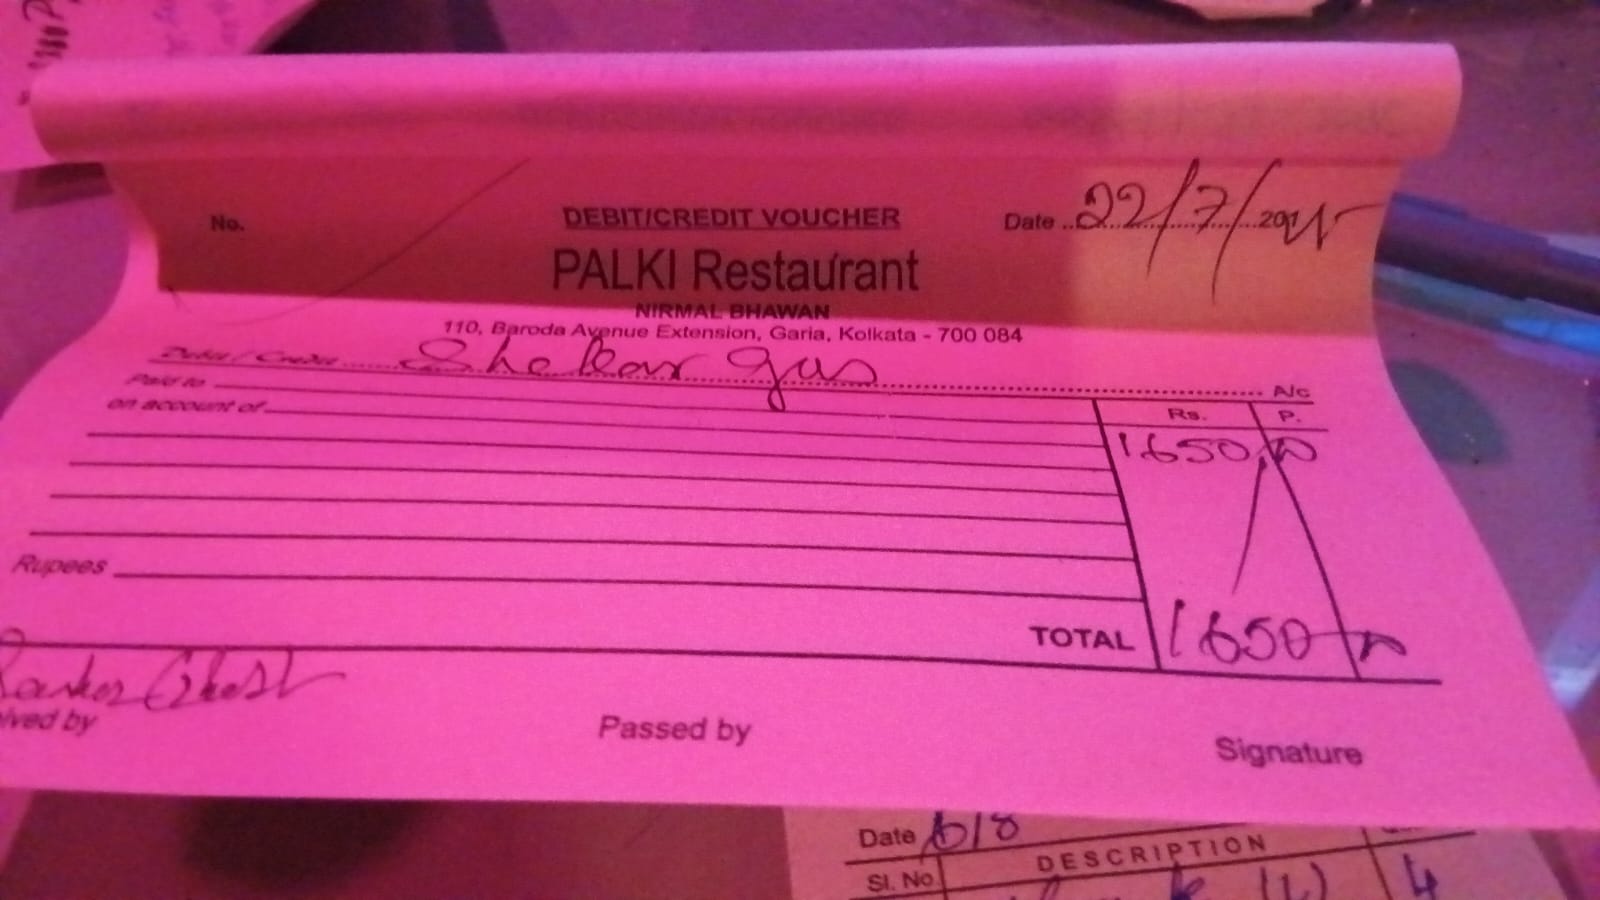 No.
DEBIT/CREDIT VOUCHER
Date 22/7/20
PALKI Restaurant
NIRMAL BHAWAN
110, Baroda Avenue Extension, Garia, Kolkata - 700 084
Debit / Credit Shekar gas A/c
Paid to
on account of
Rs. P.
1650
Rupees
TOTAL 1650
Ghosh
ived by
Passed by
Signature
Date 6/8
Sl. No. DESCRIPTION
(L) 4